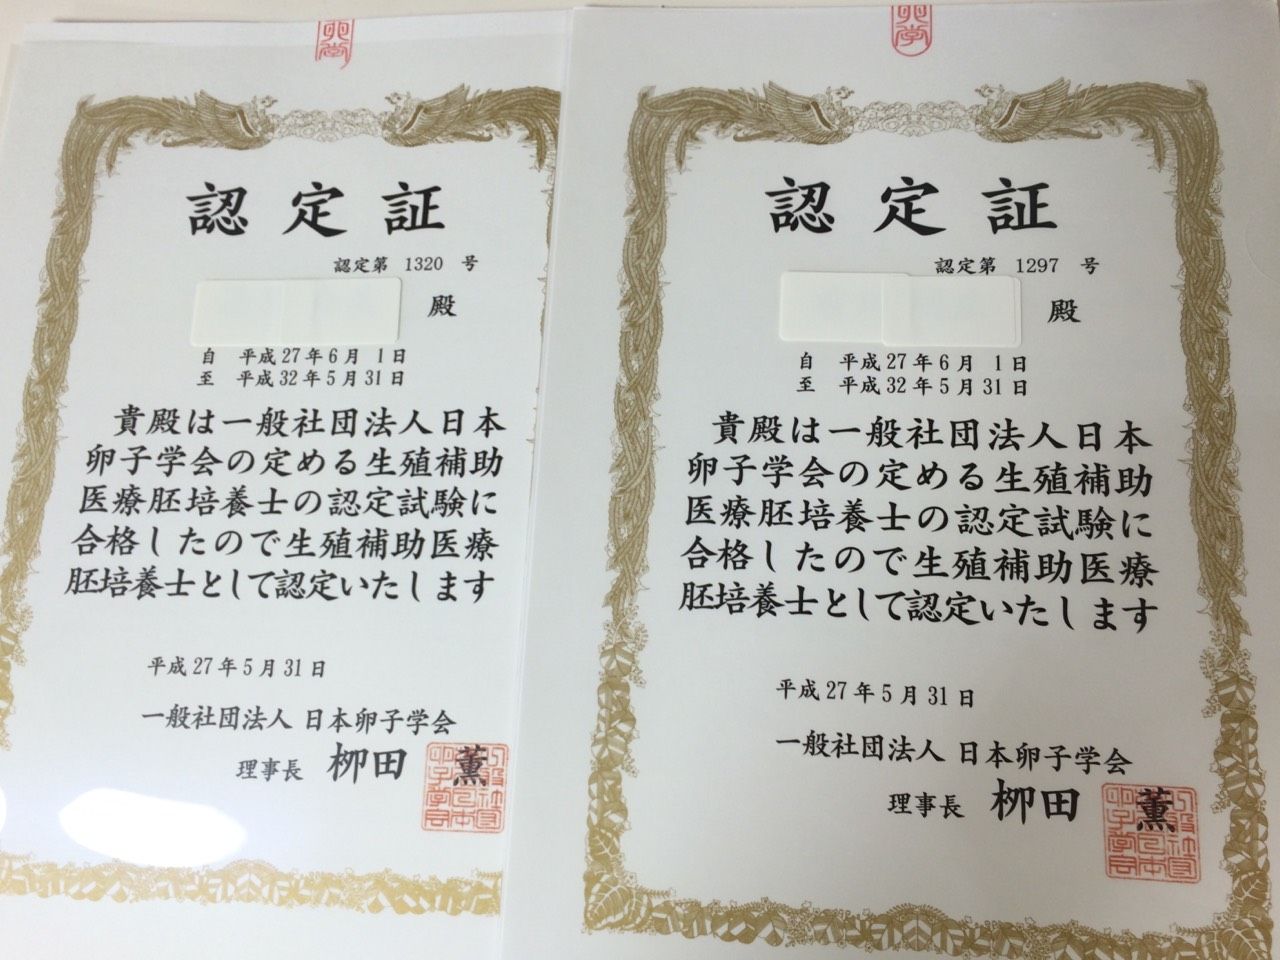 卵学
認定証
認定第 1320 号
殿
自 平成27年6月 1日
至 平成32年5月31日
貴殿は一般社団法人日本
卵子学会の定める生殖補助
医療胚培養士の認定試験に
合格したので生殖補助医療
胚培養士として認定いたします
平成27年5月31日
一般社団法人 日本卵子学会
理事長 栁田 薫
卵学
認定証
認定第 1297 号
殿
自 平成27年6月 1日
至 平成32年5月31日
貴殿は一般社団法人日本
卵子学会の定める生殖補助
医療胚培養士の認定試験に
合格したので生殖補助医療
胚培養士として認定いたします
平成27年5月31日
一般社団法人 日本卵子学会
理事長 栁田 薫